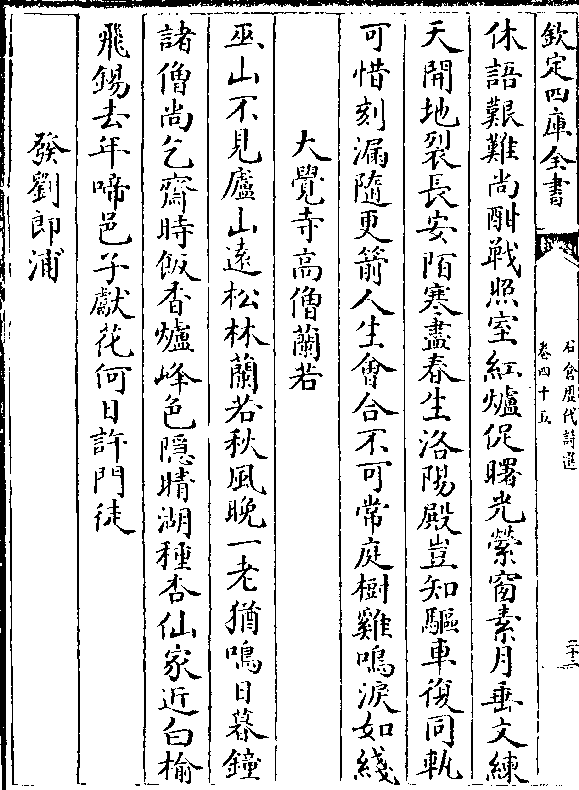 欽定四庫全書
石倉歷代詩選
卷四十五
二十二
休語艱難尚酣戰照室紅爐促曙光縈窗素月垂文練
天開地裂長安陌寒盡春生洛陽殿豈知驅車復同軌
可惜刻漏隨更箭人生會合不可常庭樹雞鳴淚如綫
大覺寺高僧蘭若
巫山不見廬山遠松林蘭若秋風晚一老猶鳴日暮鐘
諸僧尚乞齋時飯香爐峰色隱晴湖種杏仙家近白榆
飛錫去年啼邑子獻花何日許門徒
發劉郎浦